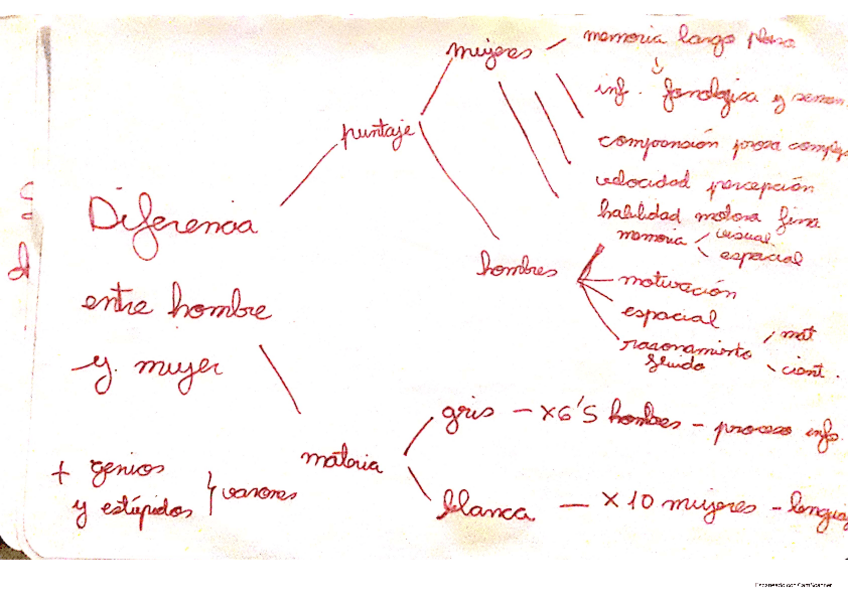 mujeres - memoria largo plazo
inf. fonológica y seman
puntaje
comprensión prosa complej
velocidad percepción
habilidad motora fina
Diferencia
entre hombre
y mujer
hombres
memoria
visual
espacial
motivación
espacial
razonamiento
fluido
mat
cient.
materia
gris - x6'5 hombres - proceso info.
blanca - x10 mujeres - lenguaj
+ genios
y estúpidos
varones
Escaneado con CamScanner